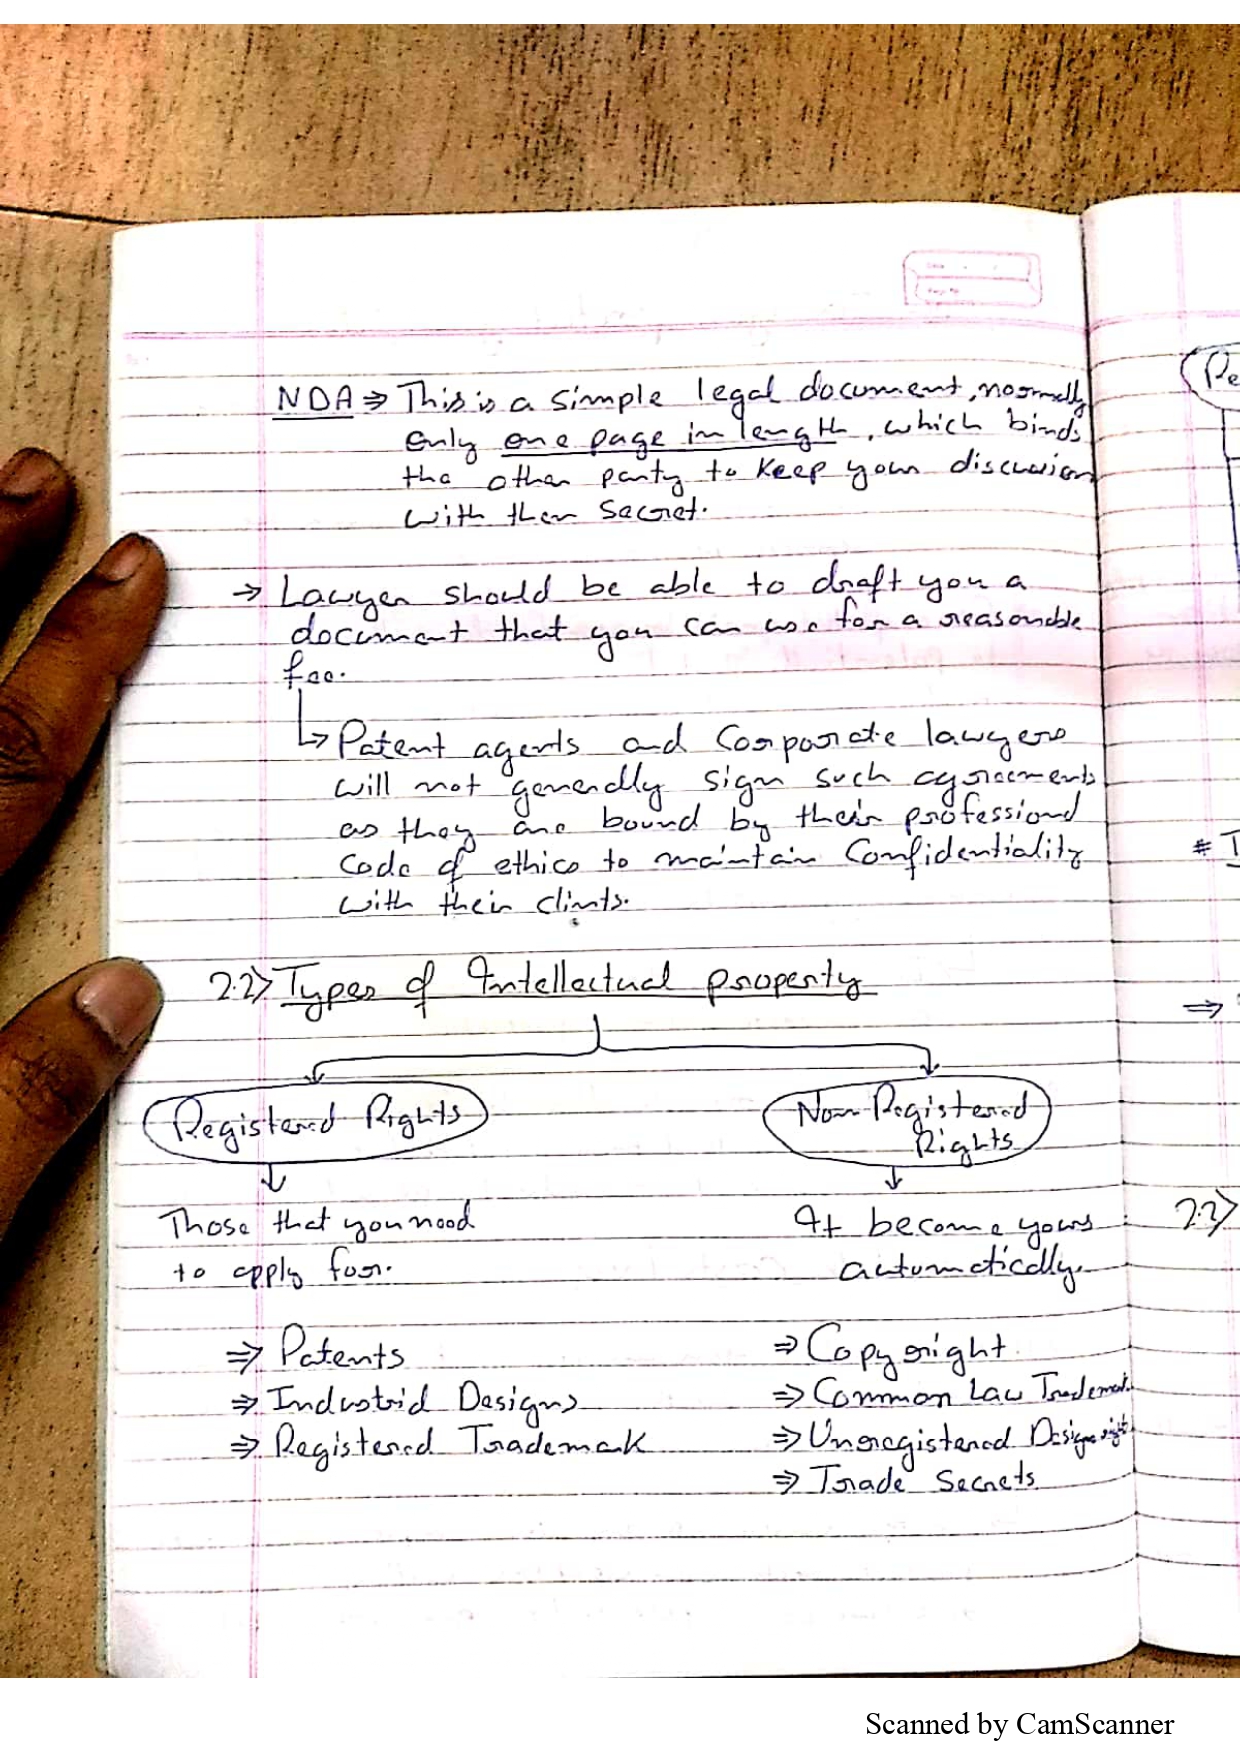 NDA ⇒ This is a simple legal document, normally
only one page in length, which binds
the other party to keep your discussion
with them secret.
→ Lawyer should be able to draft you a
document that you can use for a reasonable
fee.
↳ Patent agents and Corporate lawyers
will not generally sign such agreements
as they are bound by their professional
code of ethics to maintain Confidentiality
with their clints.
2.2> Types of Intellectual property
Registered Rights
Non-Registered
Rights
Those that you need
to apply for.
It become yours
automatically.
⇒ Patents
⇒ Industrial Designs
⇒ Registered Trademark
⇒ Copyright
⇒ Common Law Trademark
⇒ Unregistered Designs right
⇒ Trade Secrets
Scanned by CamScanner